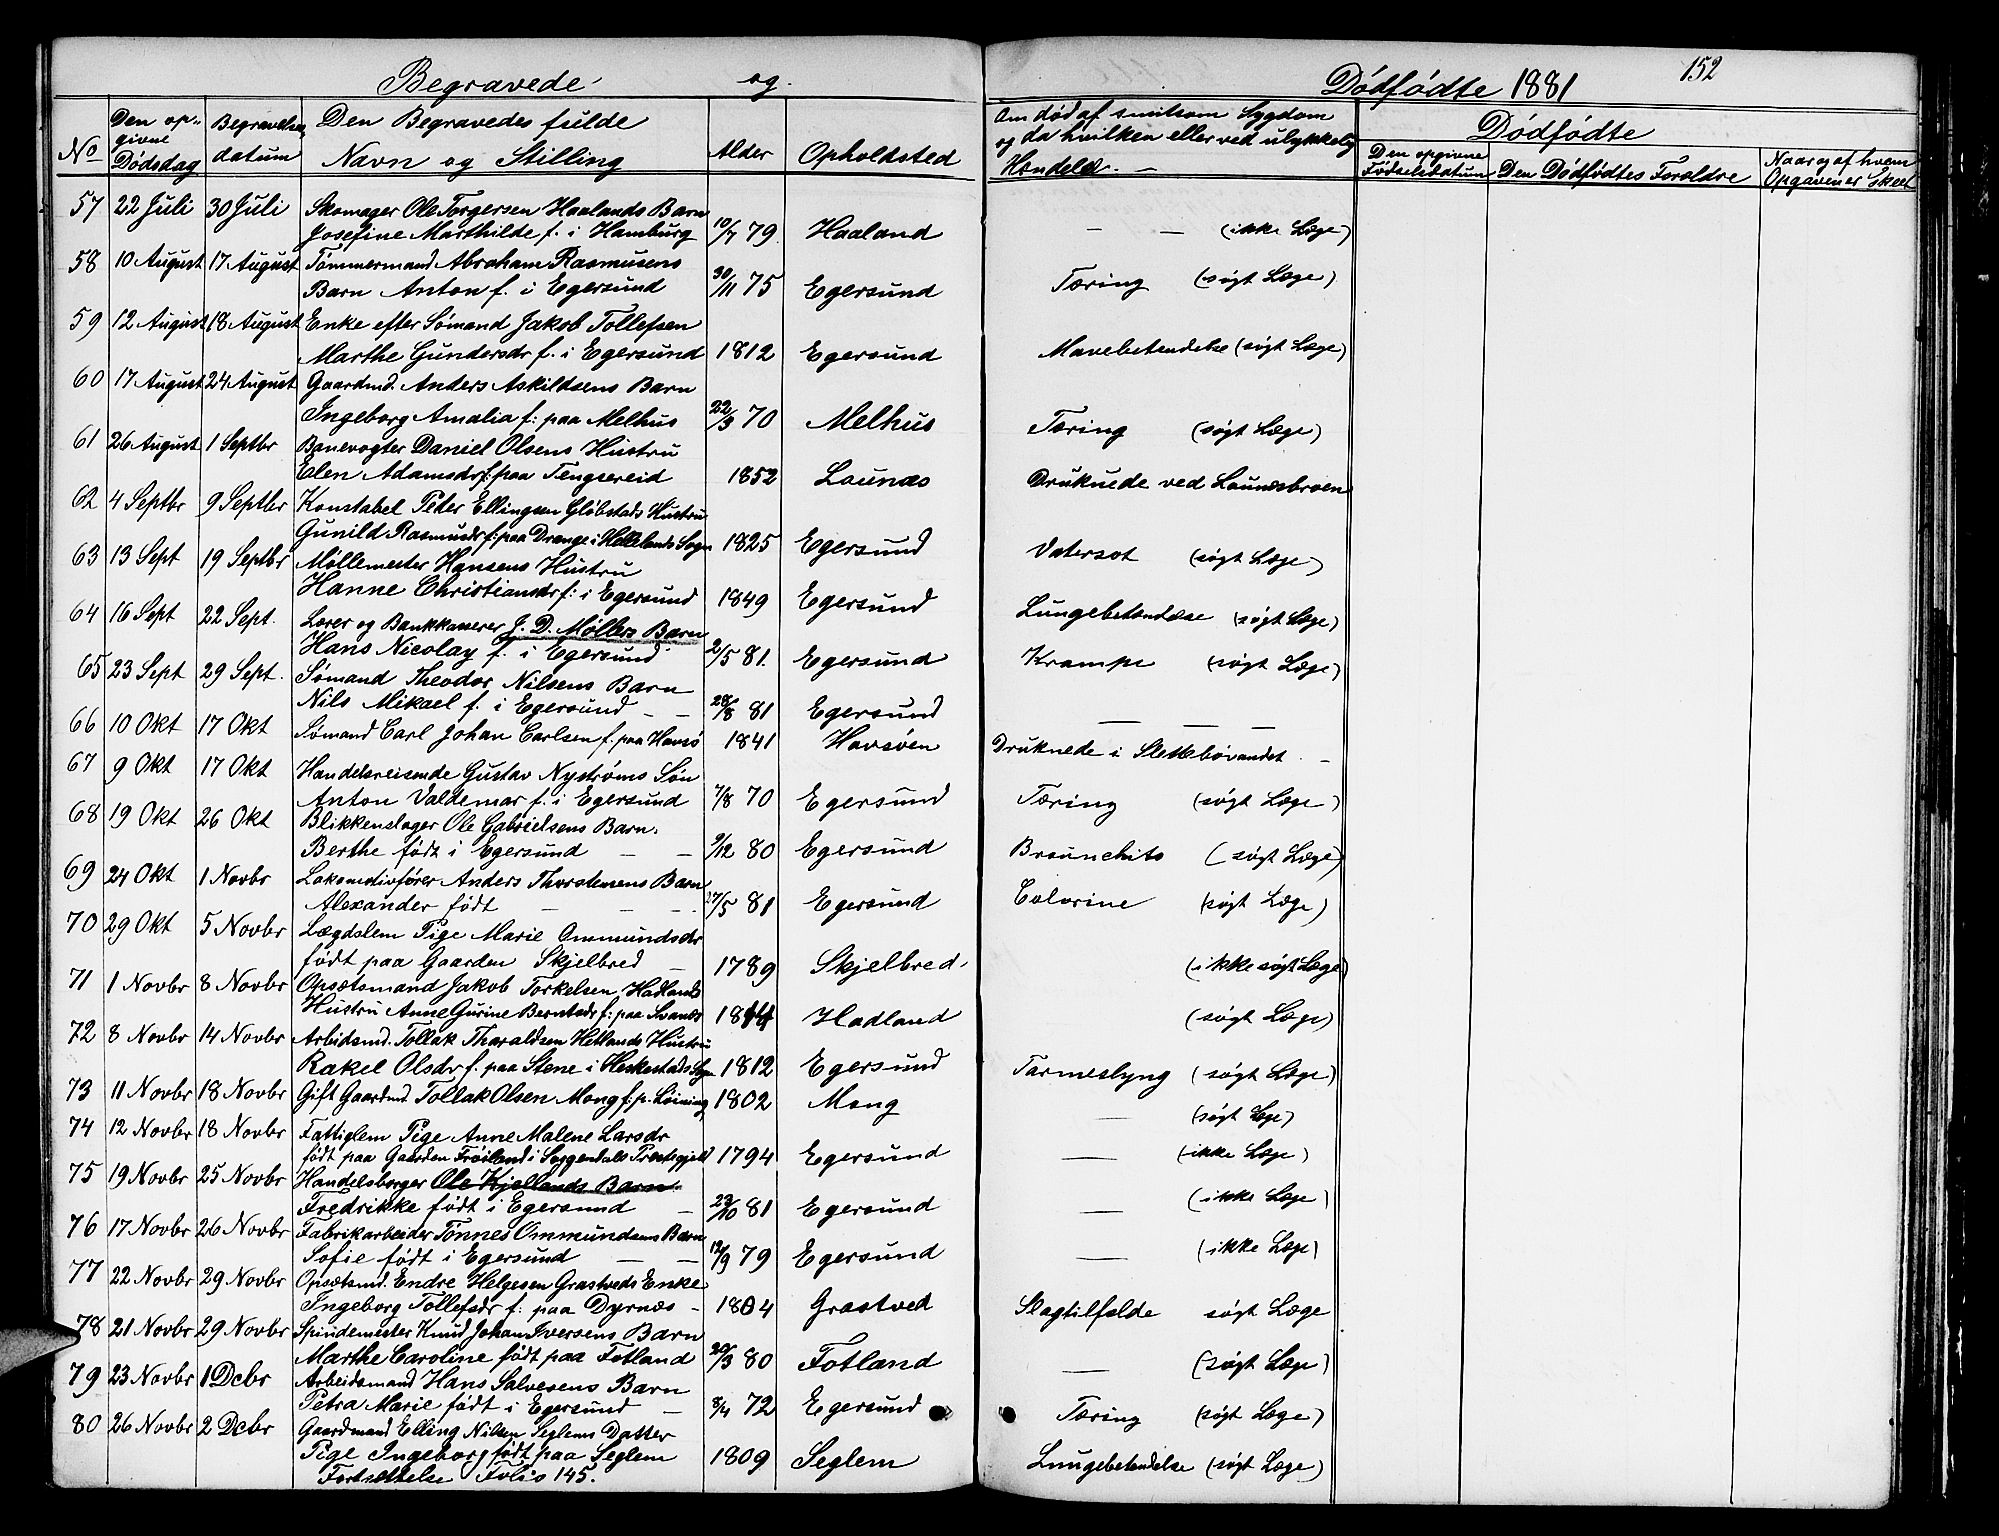 Begravede og. Dødfødte 1881 152
No Den op- givne Dødsdag Begravelses datum Den Begravedes fulde Navn og Stilling Alder Opholdsted Om død af smitsom Sygdom og da hvilken eller ved ulykkelig Hændelse. — Dødfødte Den opgivne Fødselsdatum Den Dødfødtes Forældre Naar og af hvem Opgaven er Skeet
57 22 Juli 30 Juli Skomager Ole Torgersen Haalands Barn
Josefine Marthilde f. i Hamburg 10/7 79. Haaland — — (ikke Læge)
58 10 August 17 August Tømmermand Abraham Rasmusens
Barn Anton f. i Egersund 30/11 75 Egersund Tæring (søgt Læge)
59 12 August 18 August Enke efter Sømand Jakob Tollefsen
Marthe Gundersdr f. i Egersund 1812 Egersund Mavebetendelse (søgt Læge)
60 17 August 24 August Gaardmd. Anders Askildsens Barn
Ingeborg Amalia f: paa Melhus 22/3 70 Melhus Tæring (søgt Læge)
61 26 August 1 Septbr Banevogter Daniel Olsens Hustru
Elen Adamsdr f: paa Tengsereid 1852 Launæs Druknede ved Launæsbroen
62 4 Septbr 9 Septbr Konstabel Peter Ellingsen Gløbstads Hustru
Gunild Rasmusdr f: paa Drange i Hellelands Sogn 1825 Egersund Vatersot (søgt Læge)
63 13 Sept 19 Septbr Møllemester Hansens Hustru
Hanne Christiansdr f: i Egersund 1849 Egersund Lungebetændelse (søgt Læge)
64 16 Sept 22 Sept. Lærer og Bankkaserer J. D. Møllers Barn
Hans Nicolay f. i Egersund 2/5 81. Egersund Krampe (søgt Læge)
65 23 Sept 29 Sept. Sømand Theodor Nilsens Barn
Nils Mikael f. i Egersund — — 28/8 81 Egersund — — —
66 10 Okt 17 Okt Sømand Carl Johan Carlsen f. paa Havsø 1841 Havsøen Druknede i Slettebøvandet. —
67 9 Okt 17 Okt Handelsreisende Gustav Nystrøms Søn
Anton Valdemar f. i Egersund 7/8 70 Egersund Tæring (søgt Læge)
68 19 Okt 26 Okt Blikkenslager Ole Gabrielsens Barn.
Berthe født i Egersund — — 9/12 80 Egersund Brounchits (søgt Læge)
69 24 Okt 1 Novbr Lokomotivfører Anders Thorstensens Barn
Alexander født — — — 27/5 81 Egersund Colorine (søgt Læge)
70 29 Okt 5 Novbr Lægdslem Pige Marie Ommundsdr
født paa Gaarden Skjelbred — 1789 Skjelbred. (ikke søgt Læge)
71 1 Novbr 8 Novbr Opsætsmand Jakob Torkelsen Hadlands
Hustru Anne Gurine Berntsdr f: paa Svanæs 1844 Hadland (søgt Læge)
72 8 Novbr 14 Novbr Arbeidsmd. Tollak Tharaldsen Hetlands Hustru
Rakel Olsdr f. paa Stene i Heskestads Sogn 1812 Egersund Tarmeslyng (søgt Læge)
73 11 Novbr 18 Novbr Gift Gaardmd Tollak Olsen Mong f. p. Løining 1802 Mong — (søgt Læge)
74 12 Novbr 18 Novbr Fattiglem Pige Anne Malene Larsdr
født paa Gaarden Frøiland i Soggendals Præstegjeld 1794 Egersund — (ikke Læge)
75 19 Novbr 25 Novbr Handelsborger Ole Kjellands Barn.
Fredrikke født i Egersund — 23/10 81 Egersund — (ikke Læge)
76 17 Novbr 26 Novbr Fabrikarbeider Tønnes Ommundsens Barn
Sofie født i Egersund — — 12/9 79 Egersund — (ikke Læge)
77 22 Novbr 29 Novbr Opsætsmd. Endre Helgesen Grastveds Enke
Ingeborg Tollefsdr f: paa Dyrnæs — 1804 Grastved Slagtilfælde søgt Læge
78 21 Novbr 29 Novbr Spindemester Knud Johan Iversens Barn
Marthe Caroline født paa Fotland 20/3 80 Fotland — (søgt Læge)
79 23 Novbr 1 Dcbr Arbeidsmand Hans Salvesens Barn
Petra Marie født i Egersund — 8/4 72 Egersund Tæring (søgt Læge)
80 26 Novbr 2 Dcbr Gaardmand Elling Nilsen Seglems Datter
Pige Ingeborg født paa Seglem 1809 Seglem Lungebetendelse (søgt Læge)
Fortsættelse Folio 145.